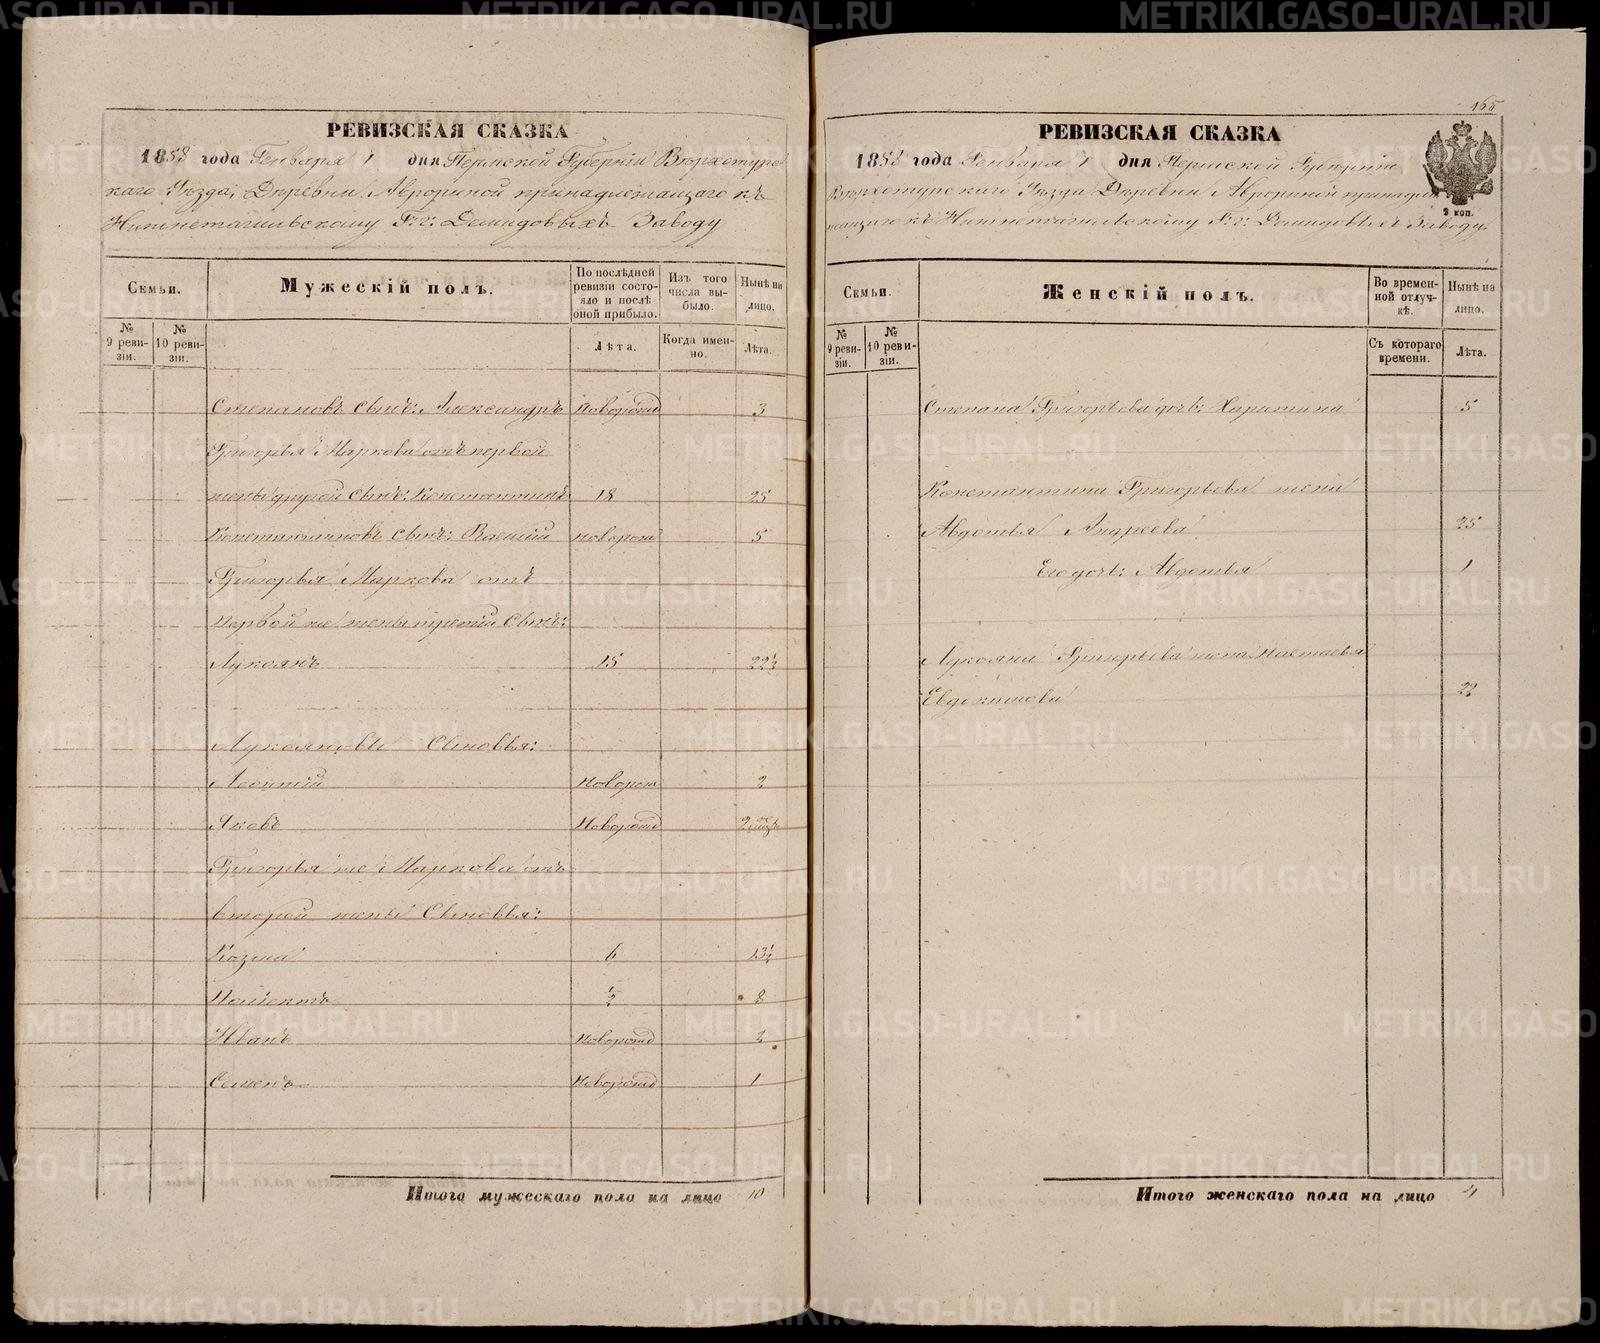 РЕВИЗСКАЯ СКАЗКА
1858 года Генваря 1 дня Пермской Губернiи Верхотурс
каго Уѣзда, Деревни Аврориной принадлежащаго къ
Нижнетагильскому Г.г. Демидовыхъ Заводу
Семьи.
№ 9 ревизiи.
№ 10 ревизiи.
Мужескiй полъ.
По послѣдней ревизiи состояло и послѣ оной прибыло.
Лѣта.
Изъ того числа выбыло.
Когда именно.
Нынѣ на лицо.
Лѣта.
Степановъ сынъ: Александръ Новорожд 3
Григорья Маркова отъ первой
жены другой сынъ: Константинъ 18 25
Константиновъ сынъ: Василiй новорож 5
Григорья Маркова отъ
первой же жены третiй сынъ:
Лукоянъ 15 22½
Лукояновы сыновья:
Леонтiй Новорож 2
Яковъ Новорожд
Григорья же Маркова отъ
второй жены сыновья:
Козма 6 13½
½ 8
Иванъ Новорожд
Семенъ Новорожд 1
Итого мужескаго пола на лицо 10
165
РЕВИЗСКАЯ СКАЗКА
1858 года Генваря 1 дня Пермской Губернiи
Верхотурскаго Уѣзда Деревни Аврориной принадле
жащаго къ Нижнетагильскому Г.г. Демидовыхъ Заводу
2 коп.
Семьи.
№ 9 ревизiи.
№ 10 ревизiи.
Женскiй полъ.
Во временной отлучкѣ.
Съ котораго времени.
Нынѣ на лицо.
Лѣта.
Степана Григорьева дочь: Харитина 5
Константина Григорьева жена
Авдотья Андреева 25
Его дочь: Авдотья 1
Лукояна Григорьева жена Настасья
Евдокимова 22
Итого женскаго пола на лицо 4
METRIKI.GASO-URAL.RU